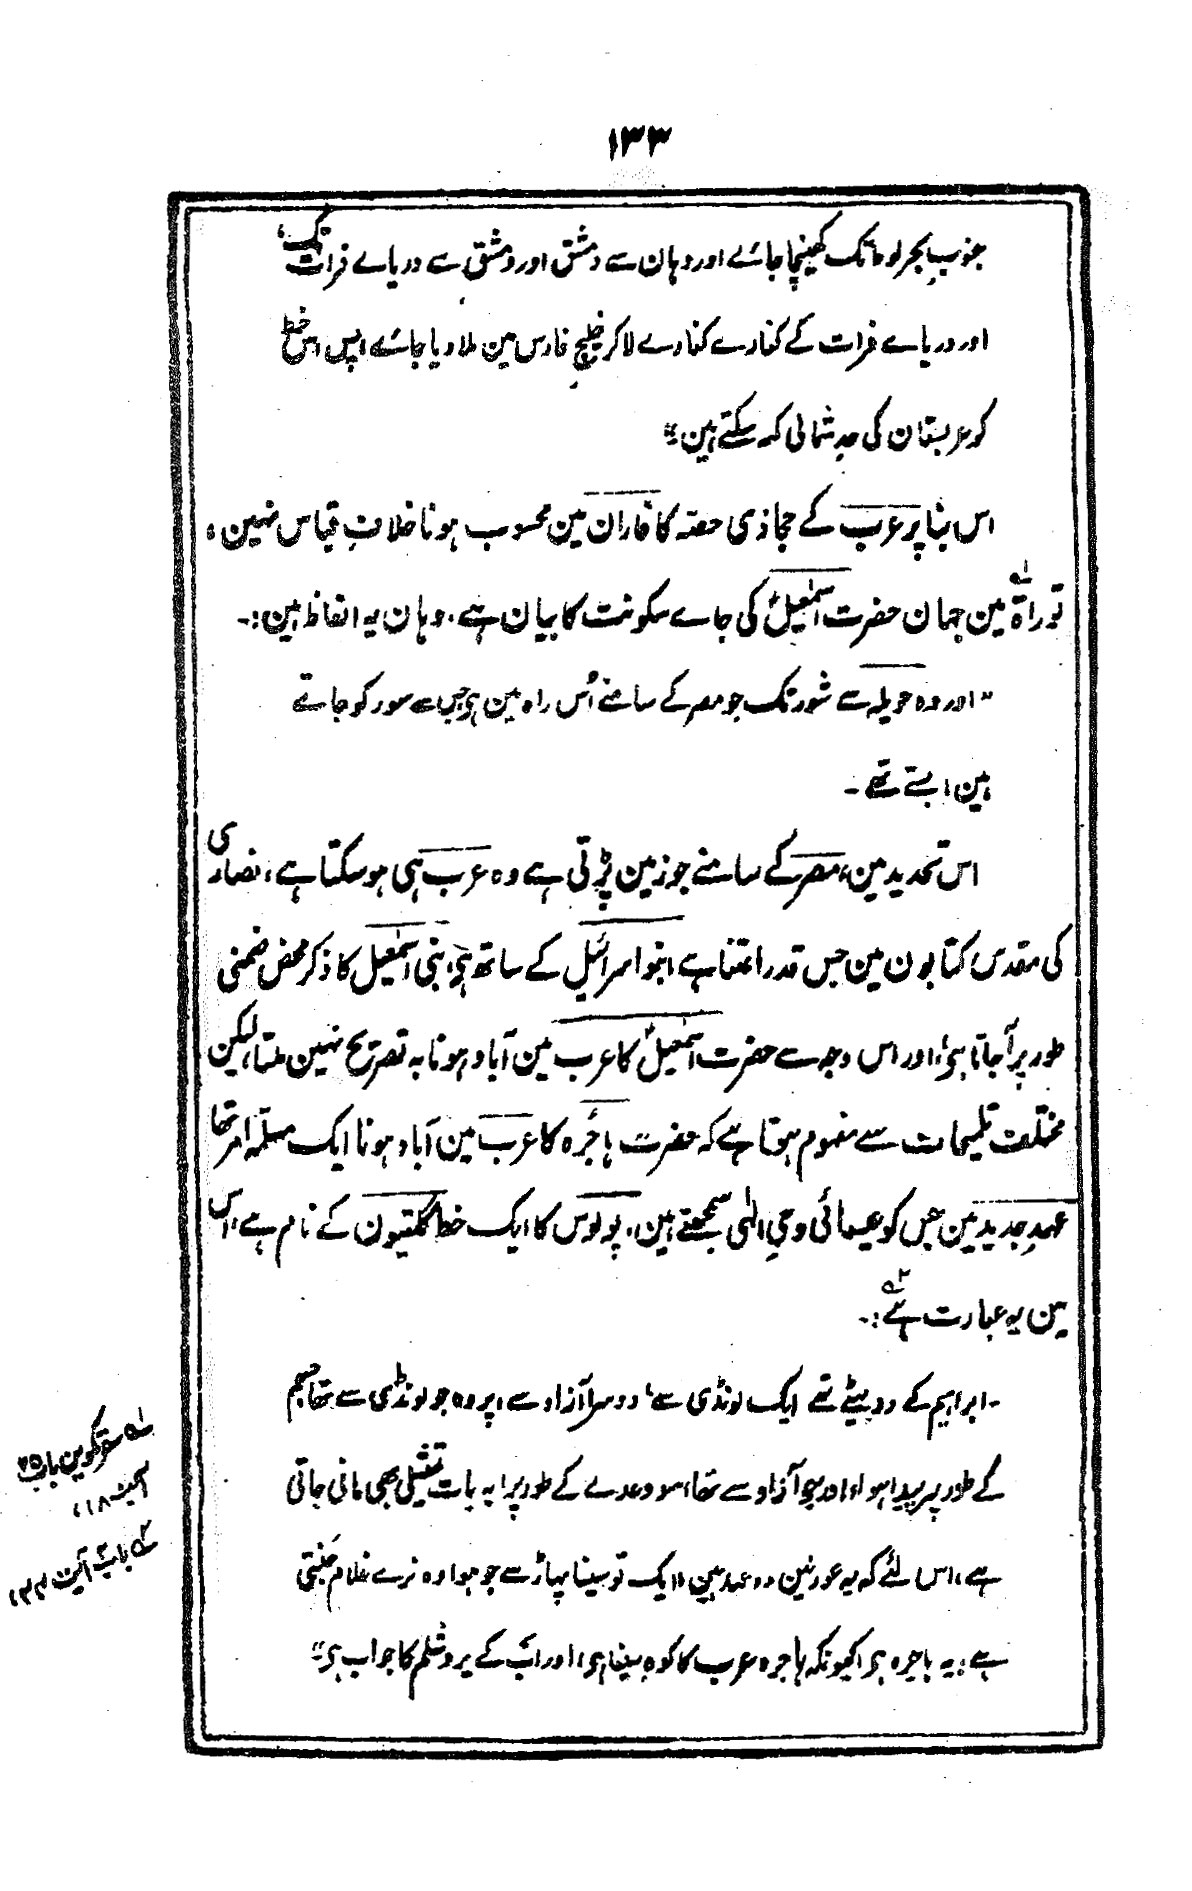 ۱۳۳
جنوب بحر لوط تک کھینچا جائے اور وہان سے دمشق اور دمشق سے دریاے فرات تک،
اور دریاے فرات کے کنارے کنارے لاکر خلیج فارس مین ملا دیا جائے، پس اس خط
کو عربستان کی حدِ شمالی کہہ سکتے ہین"
اس بنا پر عرب کے حجازی حصہ کا فاران مین محسوب ہونا خلافِ قیاس نہین،
توراۃ لہ مین جہان حضرت اسمٰعیلؑ کی جاے سکونت کا بیان ہے. وہان یہ الفاظ ہین:-
"اور وہ حویلہ سے شور تک جو مصر کے سامنے اُس راہ مین ہی جس سے سور کو جاتے
ہین، بستے تھے-
اس تحدید مین، مصر کے سامنے جو زمین پڑتی ہے وہ عرب ہی ہو سکتا ہے، نصاریٰ
کی مقدس کتابون مین جس قدر اعتنا ہے، بنو اسرائیل کے ساتھ ہی، بنی اسمٰعیل کا ذکر محض ضمنی
طور پر آجاتا ہی، اور اس وجہ سے حضرت اسمٰعیلؑ کا عرب مین آباد ہونا بہ تصریح نہین ملتا، لیکن
مختلف تلمیحات سے مفہوم ہوتا ہے کہ حضرت ہاجرہ کا عرب مین آباد ہونا ایک مسلّمہ امر تھا
عہدِ جدید مین جس کو عیسائی وحیِ الٰہی سمجھتے ہین، پولوس کا ایک خط گلتیون کے نام ہے، اس
مین یہ عبارت ہے ۲:-
"ابراہیم کے دو بیٹے تھے ایک لونڈی سے، دوسرا آزاد سے، پر وہ جو لونڈی سے تھا جسم
کے طور پر پیدا ہوا، اور جو آزاد سے تھا، سو وعدے کے طور پر، یہ بات تمثیلی بھی مانی جاتی
ہے، اس لئے کہ یہ عورتین دو عہد ہین، ایک تو سینا پہاڑ سے جو ہوا وہ نرے غلام جنتی
ہے، یہ ہاجرہ ہی، کیونکہ ہاجرہ عرب کا کوہِ سینا ہی، اور اب کے یروشلم کا جواب ہی"
لہ سفر تکوین باب ۲۵
آیت ۱۸،
۲ہ باب ۴ آیت ۲۲،